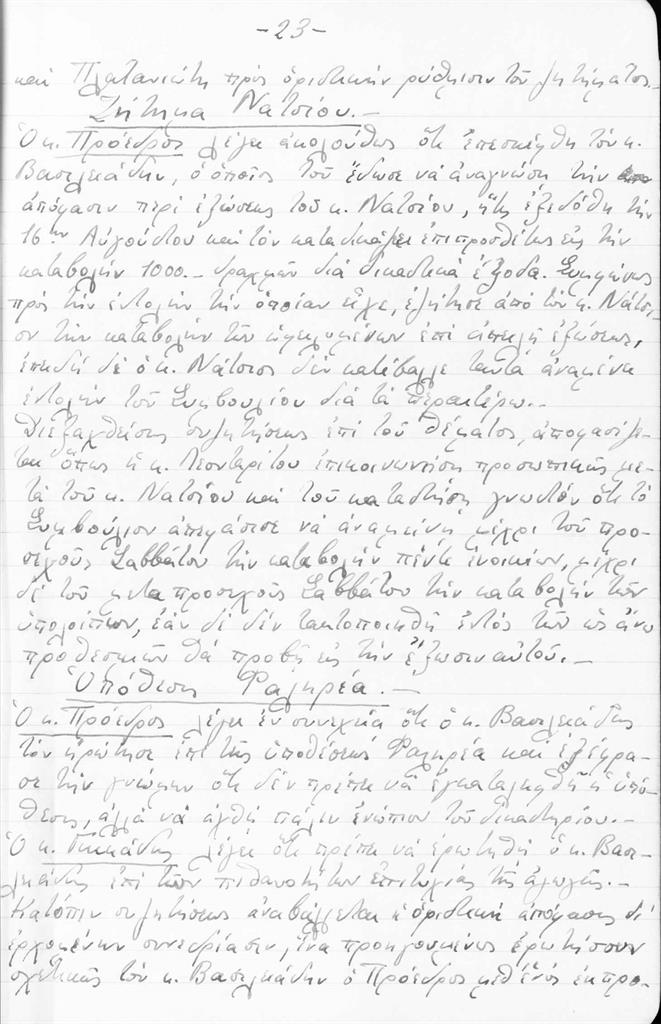 -23-
καὶ Πλατανιώτη πρὸς ὁριστικὴν ρύθμισιν τοῦ ζητήματος.
Ζήτημα Νατσίου.-
Ὁ κ. Πρόεδρος λέγει ἀκολούθως ὅτι ἐπεσκέφθη τὸν κ.
Βασιλειάδην, ὁ ὁποῖος τοῦ ἔδωσε νὰ ἀναγνώσῃ τὴν
ἀπόφασιν περὶ ἐξώσεως τοῦ κ. Νατσίου, ἥτις ἐξεδόθη τὴν
16ην Αὐγούστου καὶ τὸν καταδικάζει ἐπιπροσθέτως εἰς τὴν
καταβολὴν 1000.- δραχμῶν διὰ δικαστικὰ ἔξοδα. Συμφώνως
πρὸς τὴν ἐντολὴν τὴν ὁποίαν εἶχε, ἐζήτησε ἀπὸ τὸν κ. Νάτσι-
ον τὴν καταβολὴν τῶν ὀφειλομένων ἐπὶ ἀπειλῇ ἐξώσεως,
ἐπειδὴ δὲ ὁ κ. Νάτσιος δὲν κατέβαλλε ταῦτα ἀναμένει
ἐντολὴν τοῦ Συμβουλίου διὰ τὰ περαιτέρω.-
Διεξαχθείσης συζητήσεως ἐπὶ τοῦ θέματος, ἀποφασίζε-
ται ὅπως ἡ κ. Λεονταρίτου ἐπικοινωνήσῃ προσωπικῶς με-
τὰ τοῦ κ. Νατσίου καὶ τοῦ καταστήσῃ γνωστὸν ὅτι τὸ
Συμβούλιον ἀπεφάσισε νὰ ἀναμείνῃ μέχρι τοῦ προ-
σεχοῦς Σαββάτου τὴν καταβολὴν πέντε ἐνοικίων, μέχρι
δὲ τοῦ μεταπροσεχοῦς Σαββάτου τὴν καταβολὴν τῶν
ὑπολοίπων, ἐὰν δὲ δὲν τακτοποιηθῇ ἐντὸς τῶν ὡς ἄνω
προθεσμιῶν θὰ προβῇ εἰς τὴν ἔξωσιν αὐτοῦ.-
Ὑπόθεσις Φαληρέα.-
Ὁ κ. Πρόεδρος λέγει ἐν συνεχείᾳ ὅτι ὁ κ. Βασιλειάδης
τὸν ἠρώτησε ἐπὶ τῆς ὑποθέσεως Φαληρέα καὶ ἐξέφρα-
σε τὴν γνώμην ὅτι δὲν πρέπει νὰ ἐγκαταλειφθῇ ἡ ὑπό-
θεσις, ἀλλὰ νὰ ἀχθῇ πάλιν ἐνώπιον τοῦ δικαστηρίου.-
Ὁ κ. λέγει ὅτι πρέπει νὰ ἐρωτηθῇ ὁ κ. Βασι-
λειάδης ἐπὶ τῶν πιθανοτήτων ἐπιτυχίας τῆς ἀγωγῆς.-
Κατόπιν συζητήσεως ἀναβάλλεται ἡ ὁριστικὴ ἀπόφασις δι'
ἐρχομένην συνεδρίασιν, ἵνα προηγουμένως ἐρωτήσουν
σχετικῶς τὸν κ. Βασιλειάδην ὁ Πρόεδρος μεθ' ἑνὸς ἐκπρο-